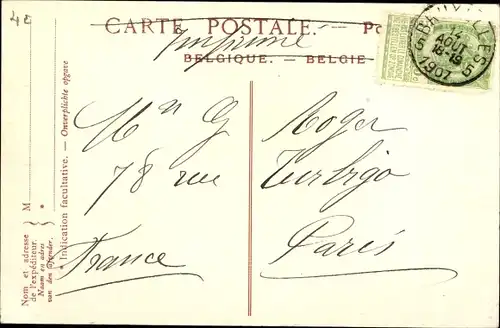 4E
CARTE POSTALE. — Po
Imprimé
BELGIQUE. — BELGIE
14
AOUT
18-19
1907
Mr G Roger
78 rue Turbigo
Paris
France
Nom et adresse
de l'expéditeur.
Naam en adres
van den afzender.
M
*
Indication facultative. — Onverplichte opgave